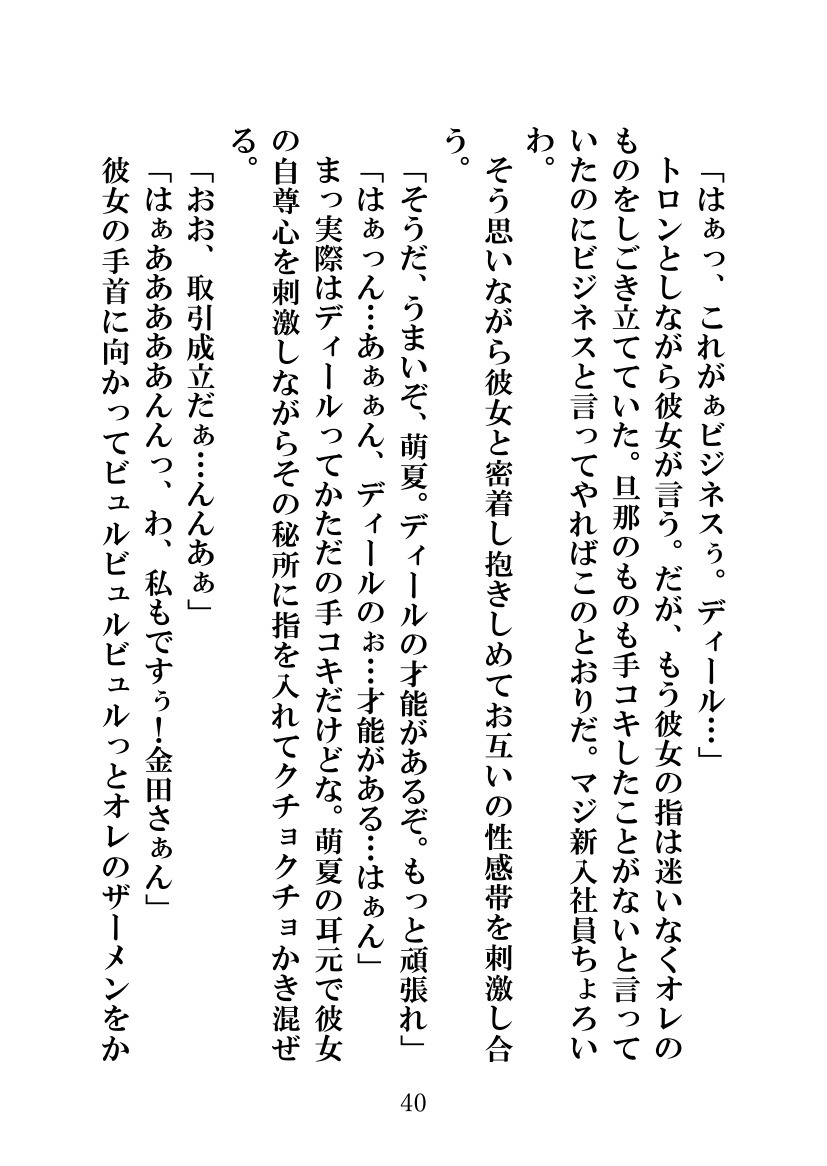 「はぁっ、これがぁビジネスぅ。ディール…」
トロンとしながら彼女が言う。だが、もう彼女の指は迷いなくオレの
ものをしごき立てていた。旦那のものも手コキしたことがないと言って
いたのにビジネスと言ってやればこのとおりだ。マジ新入社員ちょろい
わ。
そう思いながら彼女と密着し抱きしめてお互いの性感帯を刺激し合
う。
「そうだ、うまいぞ、萌夏。ディールの才能があるぞ。もっと頑張れ」
「はぁっん…あぁぁん、ディールのぉ…才能がある…はぁん」
まっ実際はディールってかただの手コキだけどな。萌夏の耳元で彼女
の自尊心を刺激しながらその秘所に指を入れてクチョクチョかき混ぜ
る。
「おお、取引成立だぁ…んんあぁ」
「はぁあああああんんっ、わ、私もですぅ！金田さぁん」
彼女の手首に向かってビュルビュルビュルっとオレのザーメンをか
40